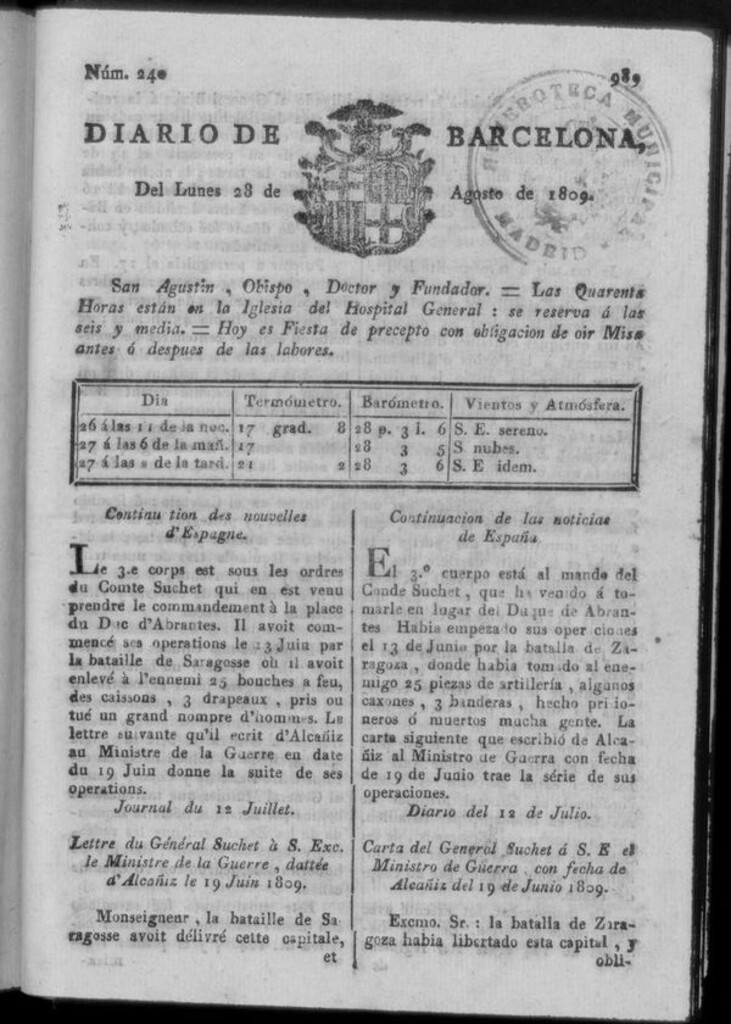 Núm. 240
989
DIARIO DE BARCELONA,
Del Lunes 28 de Agosto de 1809.
HEMEROTECA MUNICIPAL
MADRID
San Agustin , Obispo , Doctor y Fundador. = Las Quarenta
Horas están en la Iglesia del Hospital General : se reserva á las
seis y media. = Hoy es Fiesta de precepto con obligacion de oir Misa
antes ó despues de las labores.
Dia Termómetro. Barómetro. Vientos y Atmósfera.
26 á las 11 de la noc. 17 grad. 8 28 p. 3 l. 6 S. E. sereno.
27 á las 6 de la mañ. 17 28 3 5 S nubes.
27 á las 2 de la tard. 21 2 28 3 6 S. E idem.
Continu tion des nouvelles
d'Espagne.
Le 3.e corps est sous les ordres
du Comte Suchet qui en est venu
prendre le commandement à la place
du Duc d'Abrantes. Il avoit com-
mencé ses operations le 13 Juin par
la bataille de Saragosse oh il avoit
enlevé à l'ennemi 25 bouches a feu,
des caissons , 3 drapeaux , pris ou
tué un grand nompre d'hommes. La
lettre suivante qu'il ecrit d'Alcañiz
au Ministre de la Guerre en date
du 19 Juin donne la suite de ses
operations.
Journal du 12 Juillet.
Lettre du Général Suchet à S. Exc.
le Ministre de la Guerre , dattée
d'Alcañiz le 19 Juin 1809.
Monseigneur , la bataille de Sa
ragosse avoit délivré cette capitale,
et
Continuacion de las noticias
de España
El 3.º cuerpo está al mando del
Conde Suchet , que ha ven do á to-
marle en lugar del Duque de Abran-
tes Habia empeza lo sus oper ciones
el 13 de Junio por la batalla de Za-
ragoza , donde habia tom do al ene-
migo 25 piezas de artillería , algunos
caxones , 3 banderas , hecho pri io-
neros ó muertos mucha gente. La
carta siguiente que escribió de Alca-
ñiz al Ministro de Guerra con fecha
de 19 de Junio trae la série de sus
operaciones.
Diario del 12 de Julio.
Carta del General Suchet á S. E el
Ministro de Guerra . con fecha de
Alcañiz del 19 de Junio 1809.
Excmo. Sr. : la batalla de Zara-
goza habia libertado esta capital , y
obli-